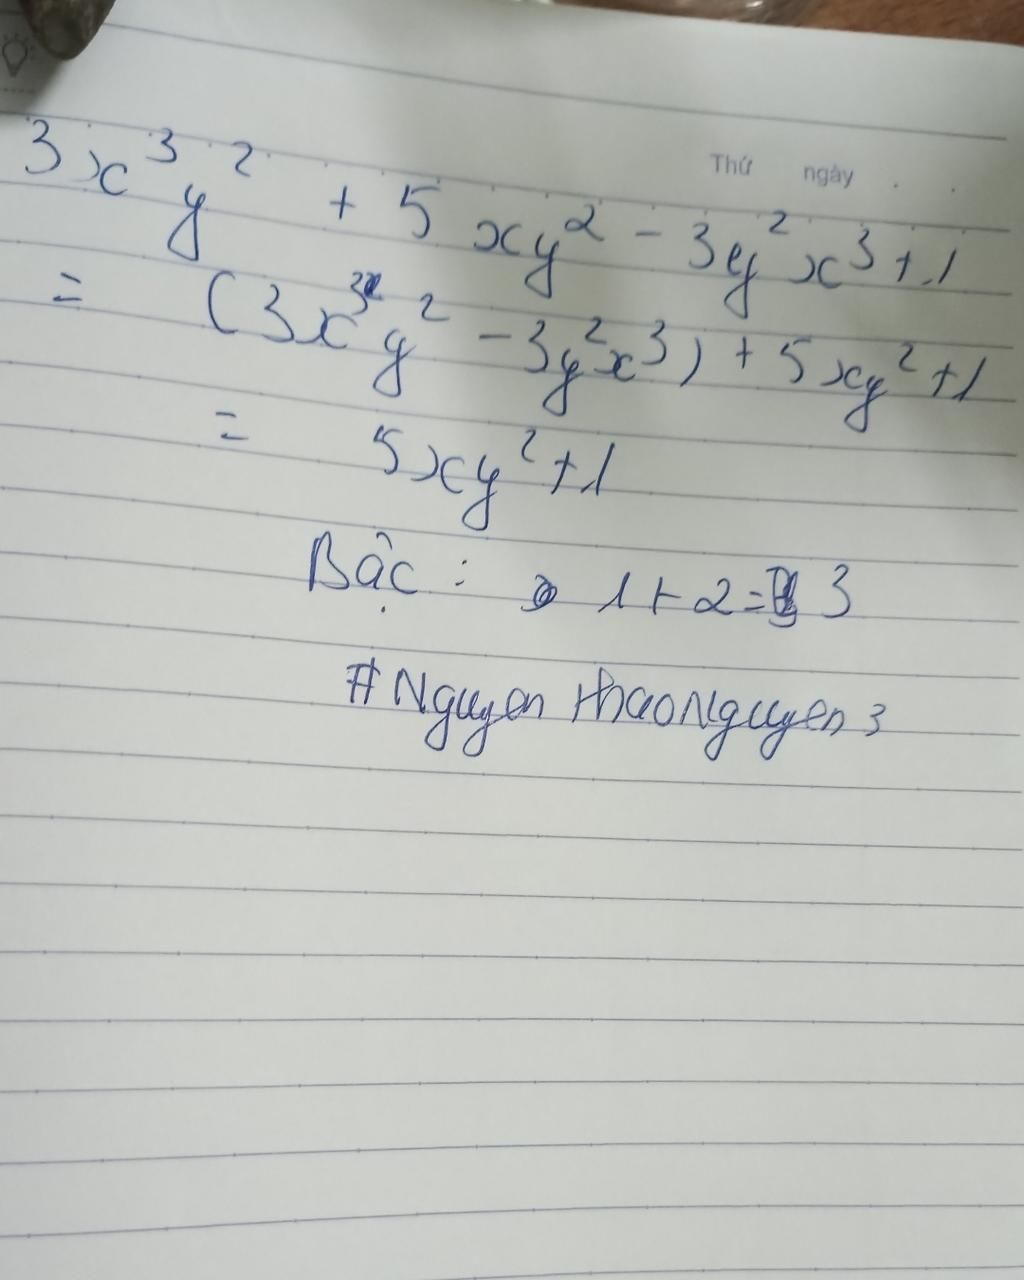 Thứ ngày
3x³y² + 5xy² - 3y²x³ + 1
= (3x³y² - 3y²x³) + 5xy² + 1
= 5xy² + 1
Bậc : 1 + 2 = 3
#NguyenThaoNguyen3